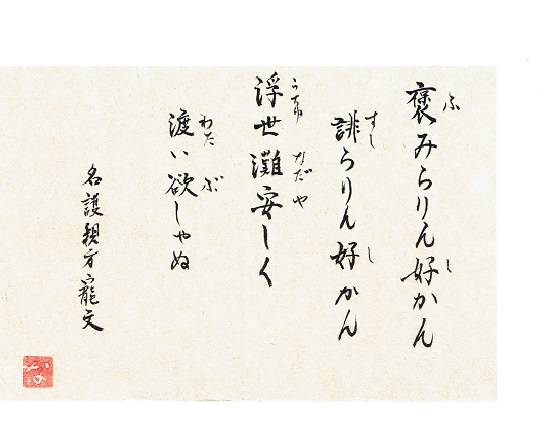 ふ し
褒みらりん好かん
すし し
誹らりん好かん
なだ や
浮世灘安しく
わた ぶ
渡い欲しゃぬ
名護親方寵文